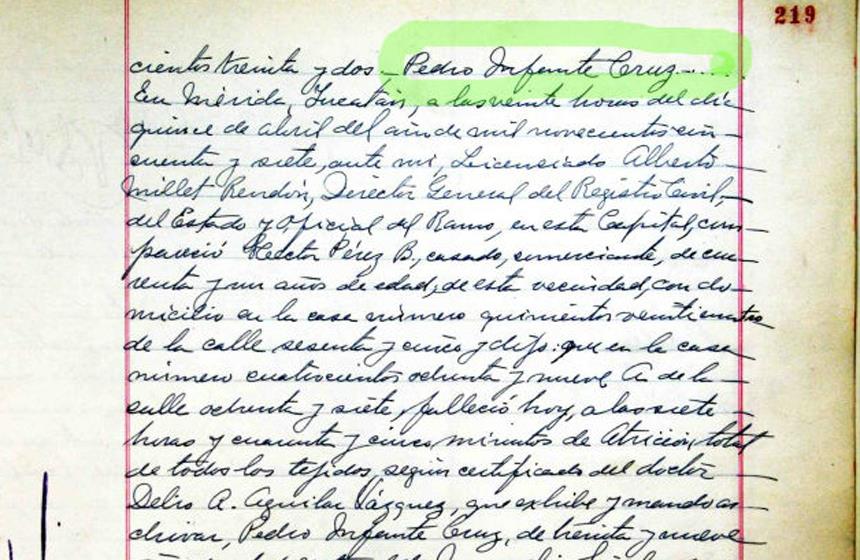 219
cientos treinta y dos – Pedro Infante Cruz-....
En Mérida, Yucatán, a las veinte horas del día
quince de abril del año de mil novecientos cin-
cuenta y siete, ante mí, Licenciado Alberto
Millet Rendón, Director General del Registro Civil,
del Estado y Oficial del Ramo, en esta Capital, com-
pareció Hector Pérez B., casado, comerciante, de cua-
renta y un años de edad, de esta vecindad, con do-
micilio en la casa número quinientos veinticuatro
de la calle sesenta y cinco y dijo: que en la casa
número cuatrocientos ochenta y nueve A de la
calle ochenta y siete, falleció hoy, a las siete
horas y cuarenta y cinco minutos de Atrición total
de todos los tejidos, según certificado del doctor
Delio A. Aguilar Vázquez, que exhibe y mando ar-
chivar, Pedro Infante Cruz, de treinta y nueve